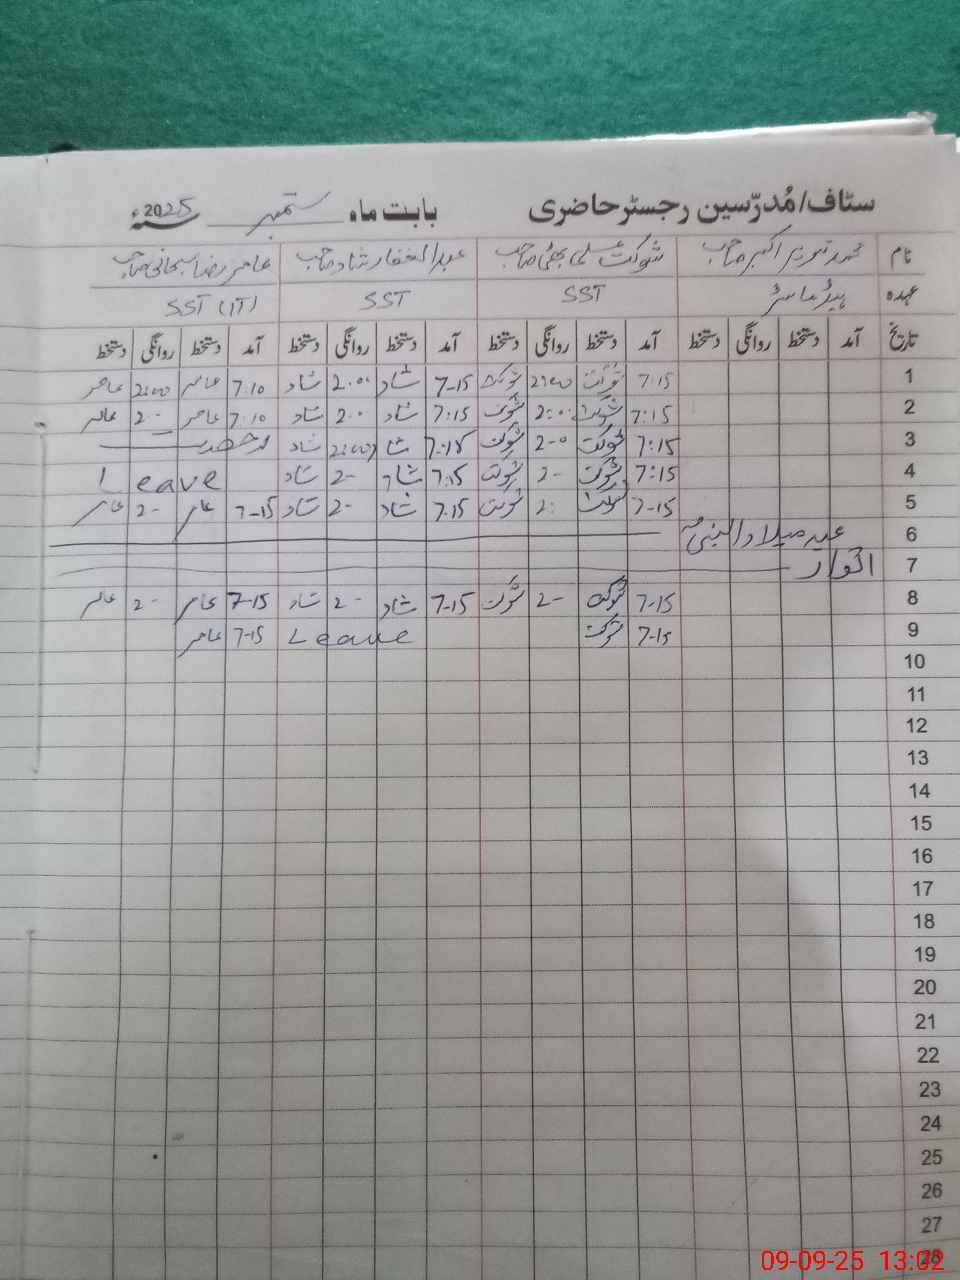 سٹاف/مُدرّسین رجسٹر حاضری بابت ماہ ستمبر 2025ء
نام محمد تبریز اکبر صاحب شوکت علی بھٹی صاحب عبدالغفار شاد صاحب عامر رضا سبحانی صاحب
عہدہ ہیڈ ماسٹر SST SST SST (IT)
تاریخ آمد دستخط روانگی دستخط آمد دستخط روانگی دستخط آمد دستخط روانگی دستخط آمد دستخط روانگی دستخط
1 7:15 شوکت 2:00 شوکت 7-15 شاد 2.00 شاد 7.10 عامر 2:00 عامر
2 7:15 شوکت 2:0 شوکت 7:15 شاد 2.0 شاد 7:10 عامر 2- عامر
3 7:15 شوکت 2-0 شوکت 7:15 شا 2:00 شاد رخصت
4 7:15 شوکت 2- شوکت 7:15 شاد 2- شاد Leave
5 7-15 شوکت 2: شوکت 7.15 شاد 2- شاد 7-15 عامر 2- عامر
6 عید میلاد النبیؐ
7 اتوار
8 7-15 شوکت 2- شوکت 7-15 شاد 2- شاد 7-15 عامر 2- عامر
9 7-15 شوکت Leave 7-15 عامر
10
11
12
13
14
15
16
17
18
19
20
21
22
23
24
25
26
27
28
09-09-25 13:02